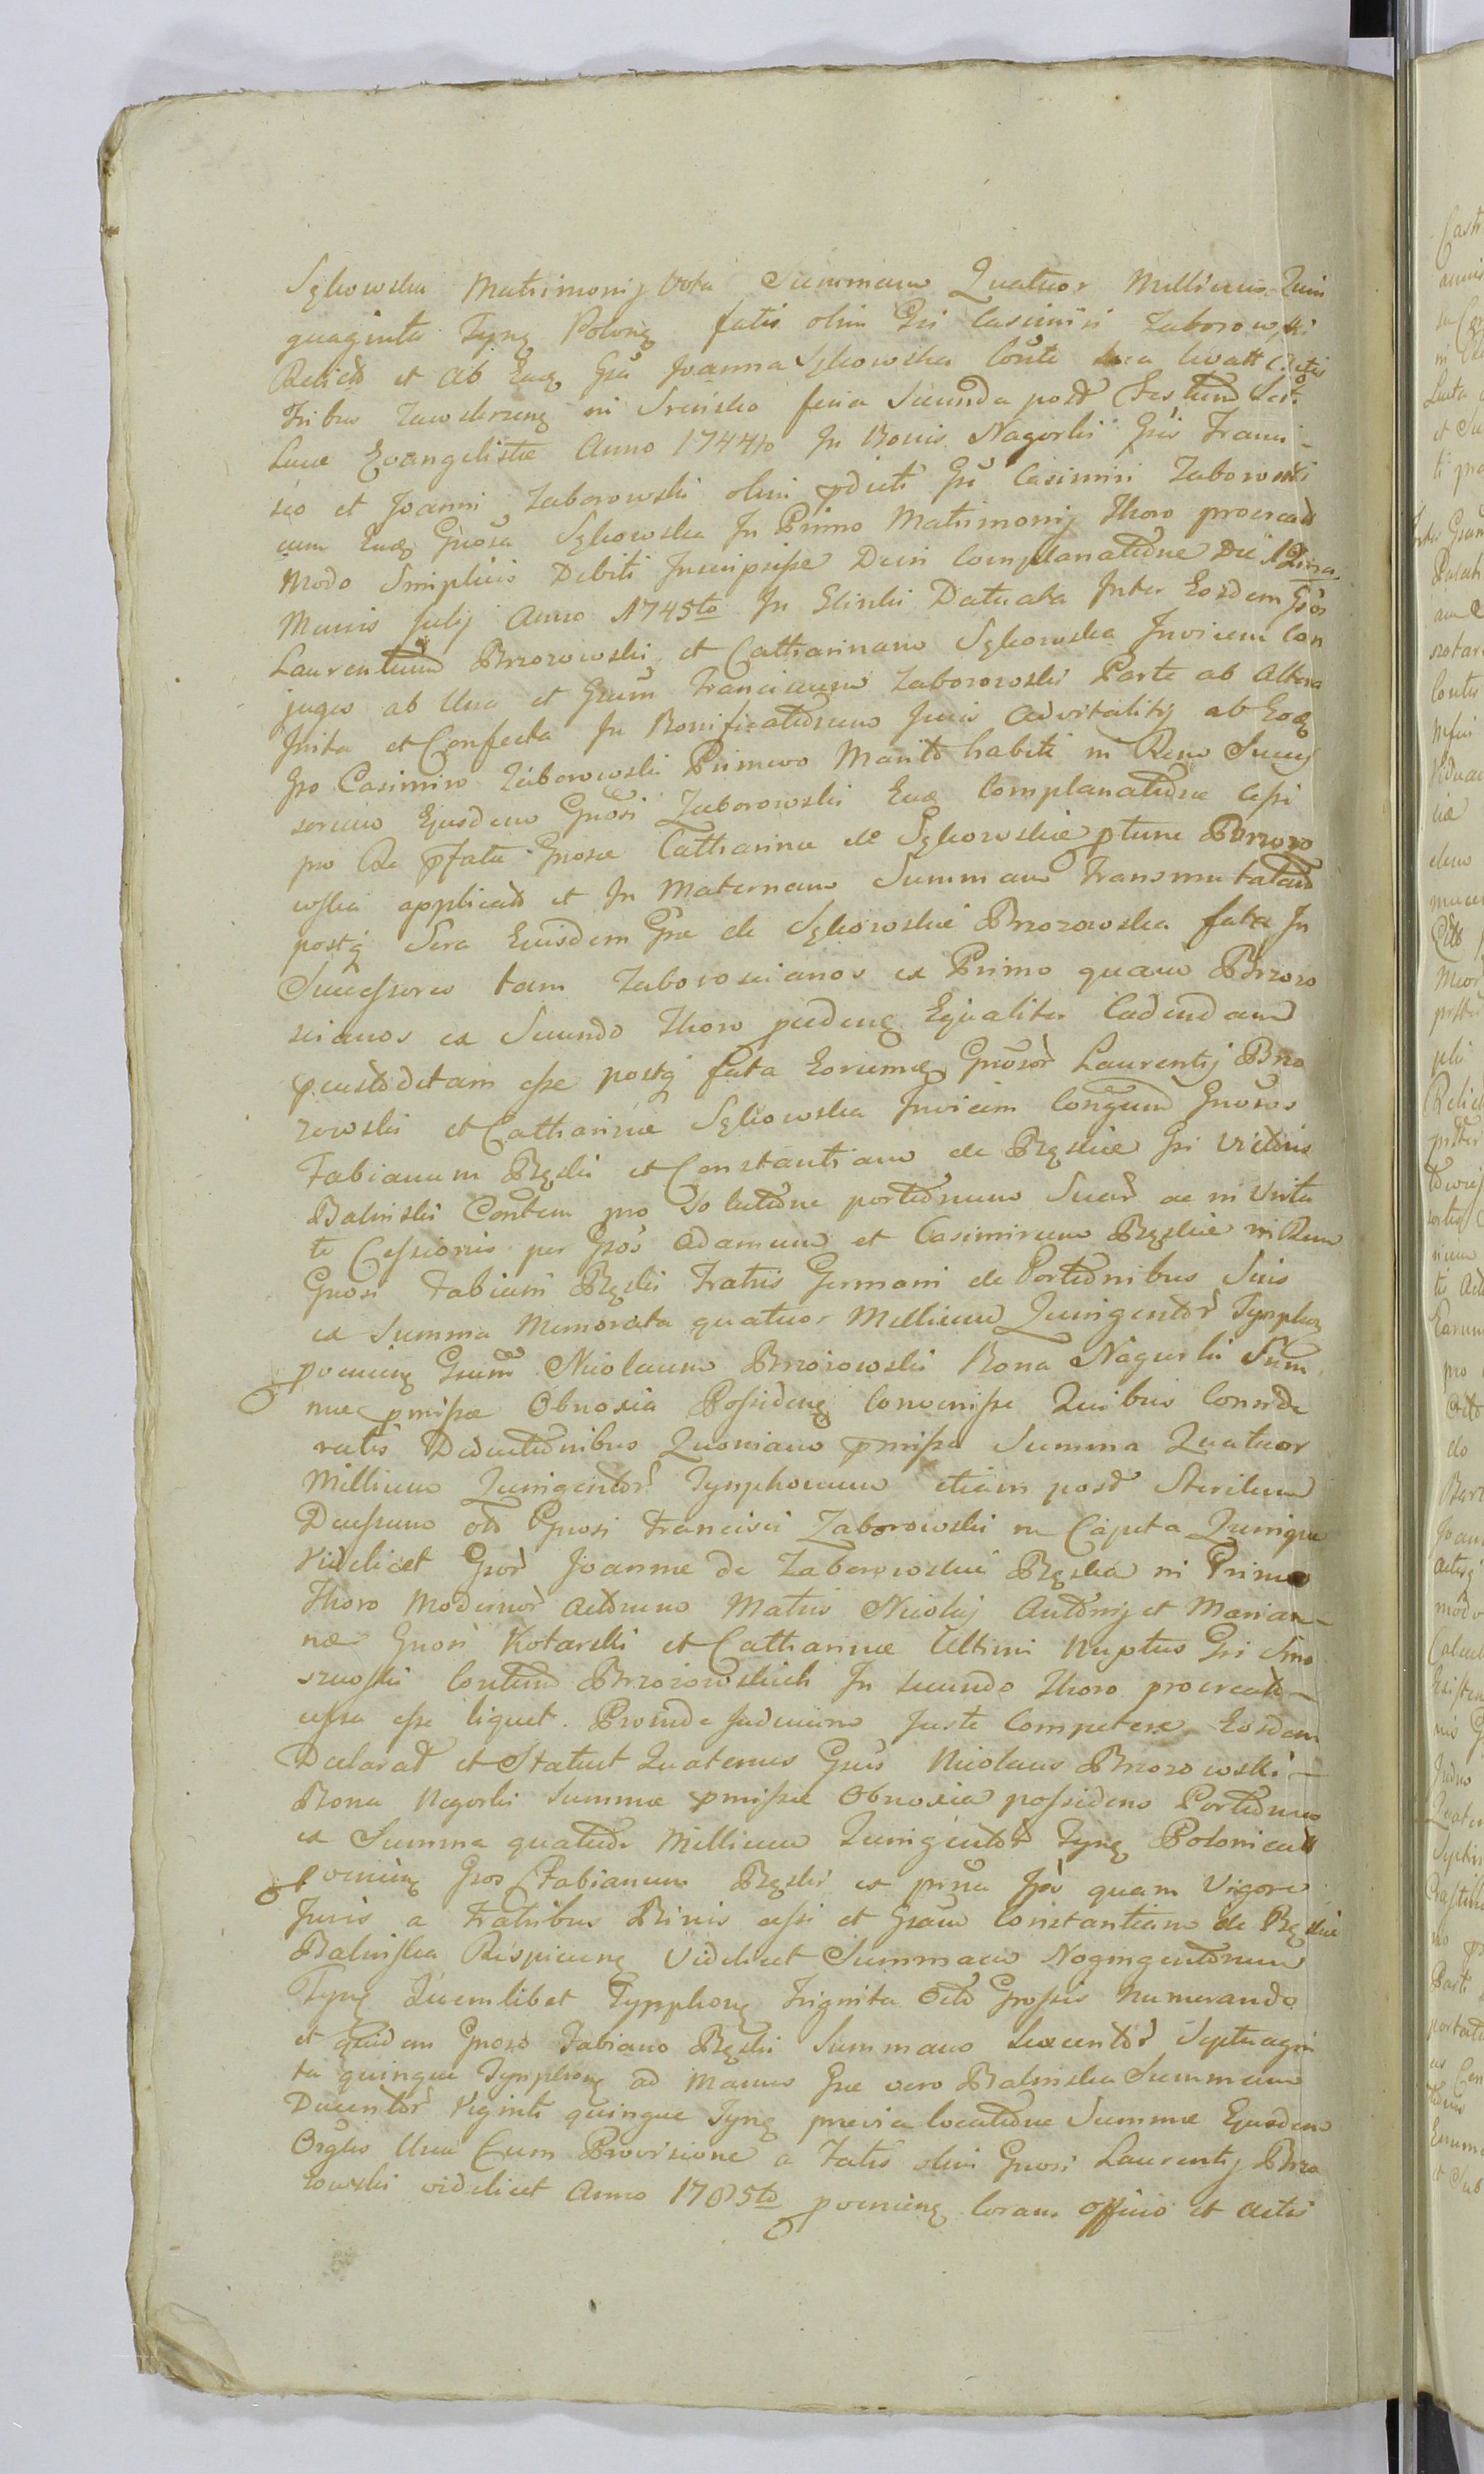 Sękowska Matrimonij Vota Summam Quatuor Millium Quin
quaginta Tynq Polonq fatis olim Gsi Casimiri Zaborowski
Relicto et ab Eaq Gsa Joanna Sękowska
Tribus Zawskrzenq in Srensko feria Secunda post Festum Scti
Lucæ Evangelistæ Anno 1744to In Bonis Nagorki Gsis Franci-
sco et Joanni Zaborowski olim pdicti Gsi Casimiri Zaborowski
cum Eaq Gnosa Sękowska In Primo Matrimonij Thoro procreatis
Modo Simplicis Debiti Inscripsisse Dein Complanatione Die 12
Mensis Julij Anno 1745to In Glinki Datuata Inter Eosdem Gsos
Laurentium Brzozowski et Catharinam Sękowska Invicem Con
juges ab Una et Gsum Franciscum Zaborowski Parte ab Altera
Inita et Confecta In Bonificationem Juris Advitalitij ab Eoq
Gso Casimiro Zaborowski Primevo Marito habiti in Rem Succes
sorum Ejusdem Gnosi Zaborowski Eaq Complanatione Cessi
pro Re pfatæ Gnosæ Catharinæ de Sękowskie ptunc Brzozo
wska applicato et In Maternam Summam Transmutatam
postq Sera Ejusdem Gsæ de Sękowskie Brzozowska fata In
Successores tam Zaborosianos ex Primo quam Brzozo
scianos ex Secundo Thoro pcedenq Equaliter Cadendam
pcustoditam esse postq fata Eorumq Gnosor Laurentij Brzo
zowski et Catharinæ Sękowska Invicem Congum Gnosos
Fabianum Bęski et Constantiam de Bęskie Gsi Victoris
Balinski Contem pro Solutione portionum Suar ac in Vita
te Cessionis per Gsos Adamum et Casimirum Bęskie in Rem
Gnosi Fabiani Bęski Fratris Germani de Portionibus Suis
ex Summa Memorata quatuor Millium Quingentor Tynphoq
pvenienq Gsum Nicolaum Brzozowski Bona Nagorki Sum
mæ pmissæ Obnoxia Possidenq Convenisse Quibus Conside
ratis Deductionibus Quoniam pmissa Summa Quatuor
Millium Quingentor Tynphonum etiam post Sterilem
Decessum olo Gnosi Francisci Zaborowski in Capita Quinque
Videlicet Gsor Joannæ de Zaborowskie Bęska in Primo
Thoro Modernor Actorum Matris Nicolaj Antonij et Marian-
næ Gnosi Kotarski et Catharinæ Ultimi Nuptus Gsi Smo
szewski Contem Brzozowskich In Secundo Thoro procreato-
cessa esse liquet. Proinde Judicium Juste Competere Eosdem
Declarat et Statuit Quatenus Gsus Nicolaus Brzozowski-
Bona Nagorki Summæ pmissæ Obnoxia possidens Portiones
ex Summa quatuor Millium Quingentor Tynq Polonicali
pvenienq Gsos Fabianum Bęski ex psna Ipsi quam Vigore
Juris a Fratribus Binis cessi et Gsam Constantiam de Bęskie
Balinska Respicienq Videlicet Summam Nogingentorum
Tynq Quemlibet Tynphonq Triginta Octo Grossis Numerando
et quidem Gnoso Fabiano Bęski Summam Sexcentor Septuagin
ta quinque Tynphonq ad Manus Gsæ vero Balinska Summam
Ducentor Viginti quinque Tynq prævia locatione Summæ Ejusdem
Orglis Una Cum Provisione a Fatis olim Gnosi Laurentij Brzo
zowski videlicet Anno 1785to pvenienq Coram Officio et Actis